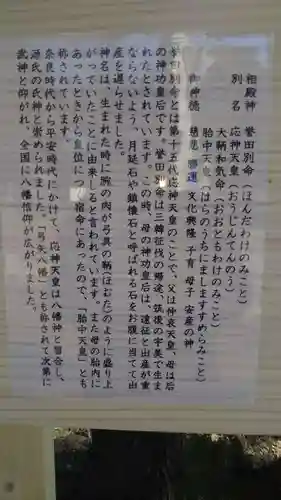 相殿神　誉田別命（ほんだわけのみこと）
別名　応神天皇（おうじんてんのう）
大鞆和気命（おおともわけのみこと）
胎中天皇（はらのうちにましますすめらみこと）
御神徳　慈悲　勝運　文化興隆　子育　母子　安産の神
誉田別命とは第十五代応神天皇のことで、父は仲哀天皇、母は后
の神功皇后です。誉田別命は三韓征伐の帰途、筑後の宇美で生ま
れたとされています。この時、母の神功皇后は、遠征と出産が重
ならないよう、月延石や鎮懐石と呼ばれる石をお腹に当てて出
産を遅らせました。
神名は、生まれた時に腕の肉が弓具の鞆（ほむた）のように盛り上
がっていたことに由来すると言われています。また母の胎内に
あったときから皇位につく宿命にあったので、「胎中天皇」とも
称されています。
奈良時代から平安時代にかけて、応神天皇は八幡神と習合し、
源氏の氏神と崇められました。「弓矢八幡」とも称されて次第に
武神と仰がれ、全国に八幡信仰が広がりました。